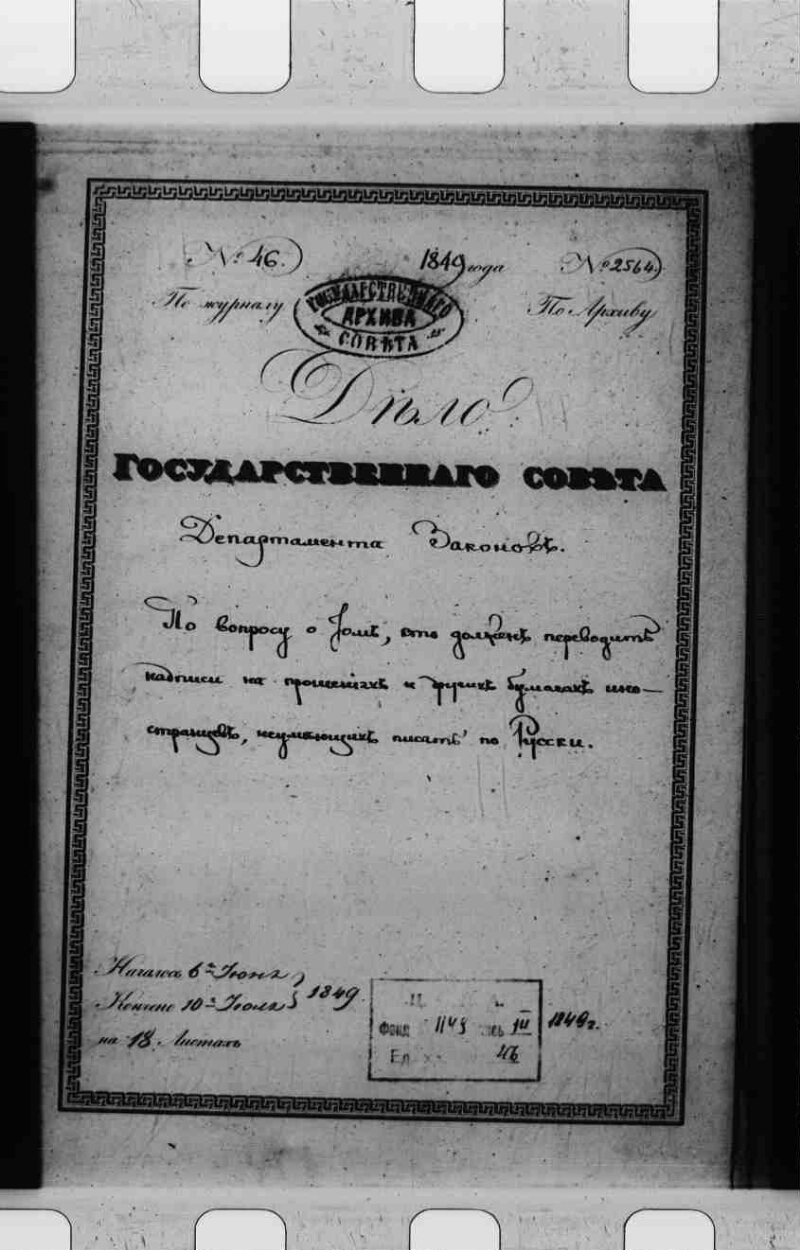 № 46.
1849 года
№ 2564.
По журналу
ГОСУДАРСТВЕННАГО
АРХИВА
СОВѢТА
По Архиву
Дѣло
ГОСУДАРСТВЕННАГО СОВѢТА
Департамента Законовъ.
По вопросу о томъ, кто долженъ переводить
надписи на прошеніяхъ и другихъ бумагахъ ино-
странцевъ, неумѣющихъ писать по Русски.
Начало 6го Іюня
Кончено 10го Іюля 1849
на 18. листахъ
Фонд 1149
1849 г.
Ед 46